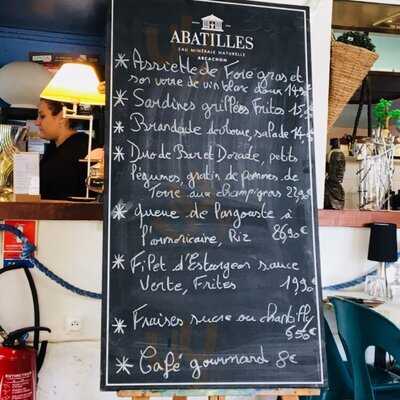 ABATILLES
EAU MINÉRALE NATURELLE
ARCACHON
* Assiette de Foie gras et
son verre de vin blanc doux 14,90
* Sardines grillées Frites 15,90
* Brandade de morue, salade 14,90
* Duo de Bar et Dorade, petits
légumes, gratin de pommes de
Terre aux champignons 22,90
* Queue de langouste à
l'armoricaine, Riz 26,90
* Filet d'Esturgeon sauce
Verte, Frites 19,90
* Fraises sucre ou chantilly
6,50€
* Café gourmand 8€